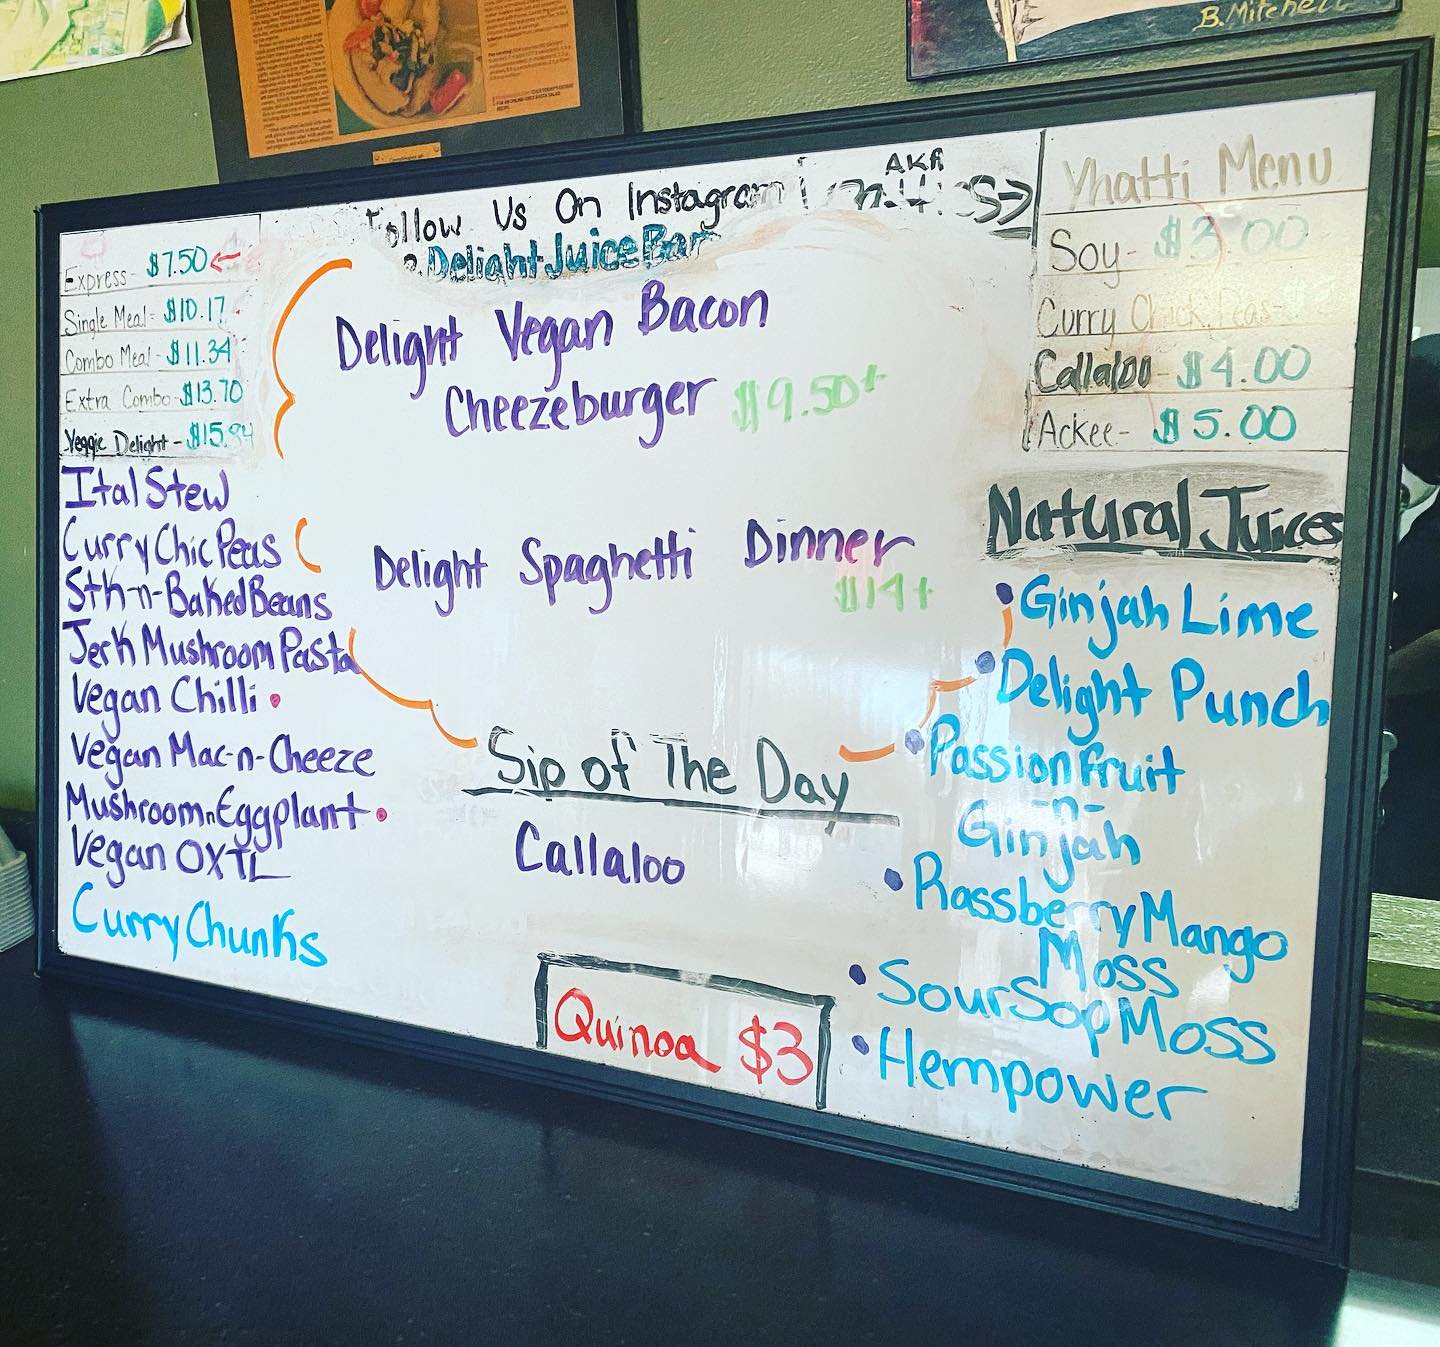 B. Mitchell
Follow Us On Instagram
DelightJuiceBar
AKA
Express- $7.50
Single Meal- $10.17
Combo Meal- $11.34
Extra Combo- $13.70
Veggie Delight- $15.84
Delight Vegan Bacon
Cheezeburger $9.50+
Delight Spaghetti Dinner
$14+
Ital Stew
Curry Chic Peas
Sth-n-Baked Beans
Jerk Mushroom Pasta
Vegan Chilli
Vegan Mac-n-Cheeze
Mushroom n Eggplant
Vegan OXTL
Curry Chunks
Sip of The Day
Callaloo
Quinoa $3
Yhatti Menu
Soy- $3.00
Curry Chick Peas-
Callaloo- $4.00
Ackee- $5.00
Natural Juices
• Ginjah Lime
• Delight Punch
• Passion fruit
-n-
Ginjah
• Rassberry Mango
Moss
• SourSop Moss
• Hempower